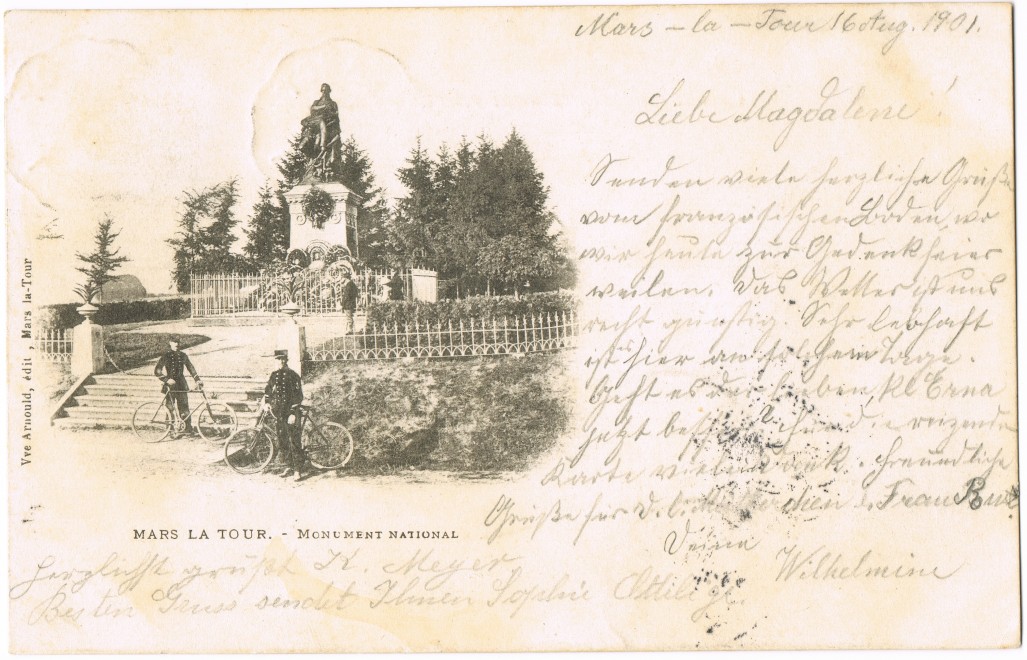 Mars-la-Tour 16 Aug. 1901.
Liebe Magdalene!
Senden viele herzliche Grüße
vom französischen Boden, wo
wir heute zur Gedenkfeier
weilen. Das Wetter ist uns
recht günstig. Sehr lebhaft
ist hier an solchem Tage.
Geht es der lieben kl Erna
jetzt die reizende
Karte vielen Dank. Freundliche
Grüße für d. l. Frau
Deine
Wilhelmine
Vve Arnould, édit, Mars-la-Tour
MARS LA TOUR. - MONUMENT NATIONAL
Herzlichst grüßt K. Meyer
Besten Gruss sendet Ihnen Sophie